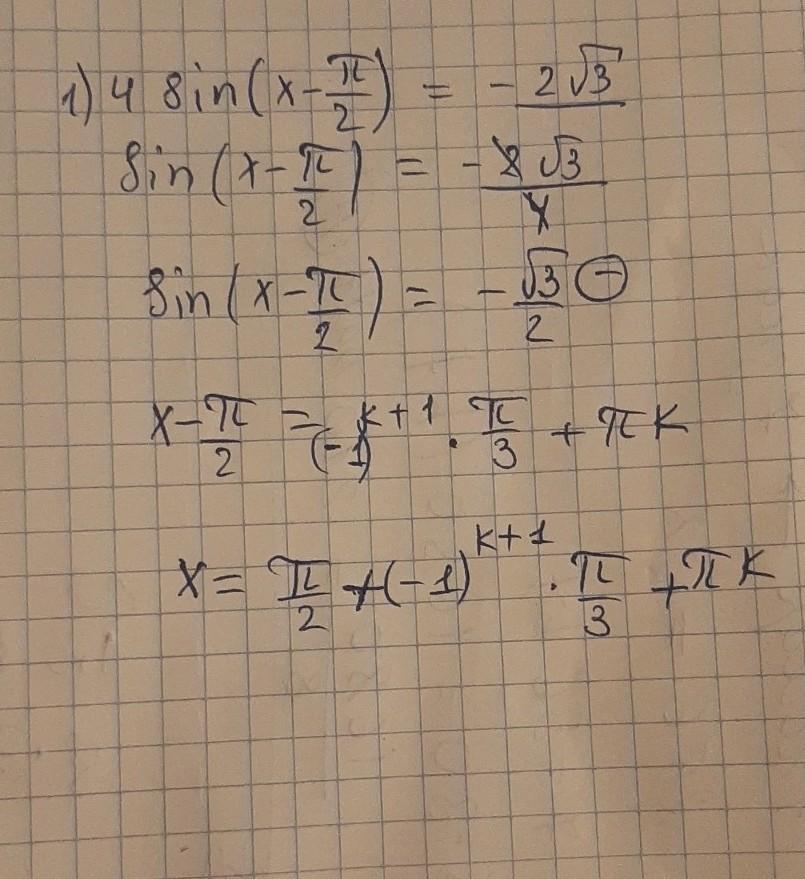 1) 4 sin(x-π/2) = -2√3
sin(x-π/2) = -2√3/4
sin(x-π/2) = -√3/2 ⊖
x-π/2 = (-1)^k+1 · π/3 + πk
x= π/2 +(-1)^k+1 · π/3 +πk